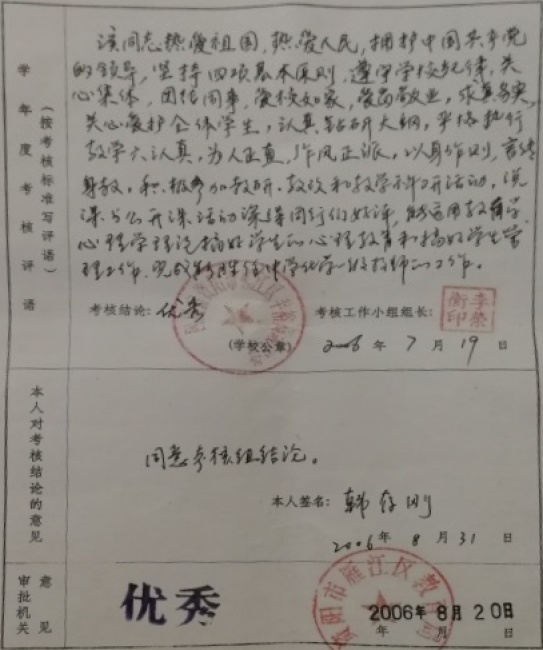 学年度考核评语
（按考核标准写评语）
该同志热爱祖国，热爱人民，拥护中国共产党
的领导，坚持四项基本原则，遵守学校纪律，关
心集体，团结同事，爱校如家，爱岗敬业，求真务实，
关心爱护全体学生，认真钻研大纲，严格执行
教学六认真，为人正直，作风正派，以身作则，言传
身教，积极参加教研、教改和教学公开活动，说
课与公开课活动深得同行们好评，能运用教育学
心理学理论搞好学生的心理教育和搞好学生管
理工作，完成
中学化学一级教师的工作。
考核结论：优秀
考核工作小组组长：
李荣衡印
（学校公章）
2006 年 7 月 19 日
本人对考核结论的意见
同意考核组结论。
本人签名：韩存刚
2006 年 8 月 31 日
审批机关意见
优秀
资阳市雁江区教育局
2006年8月20日
年 月 日